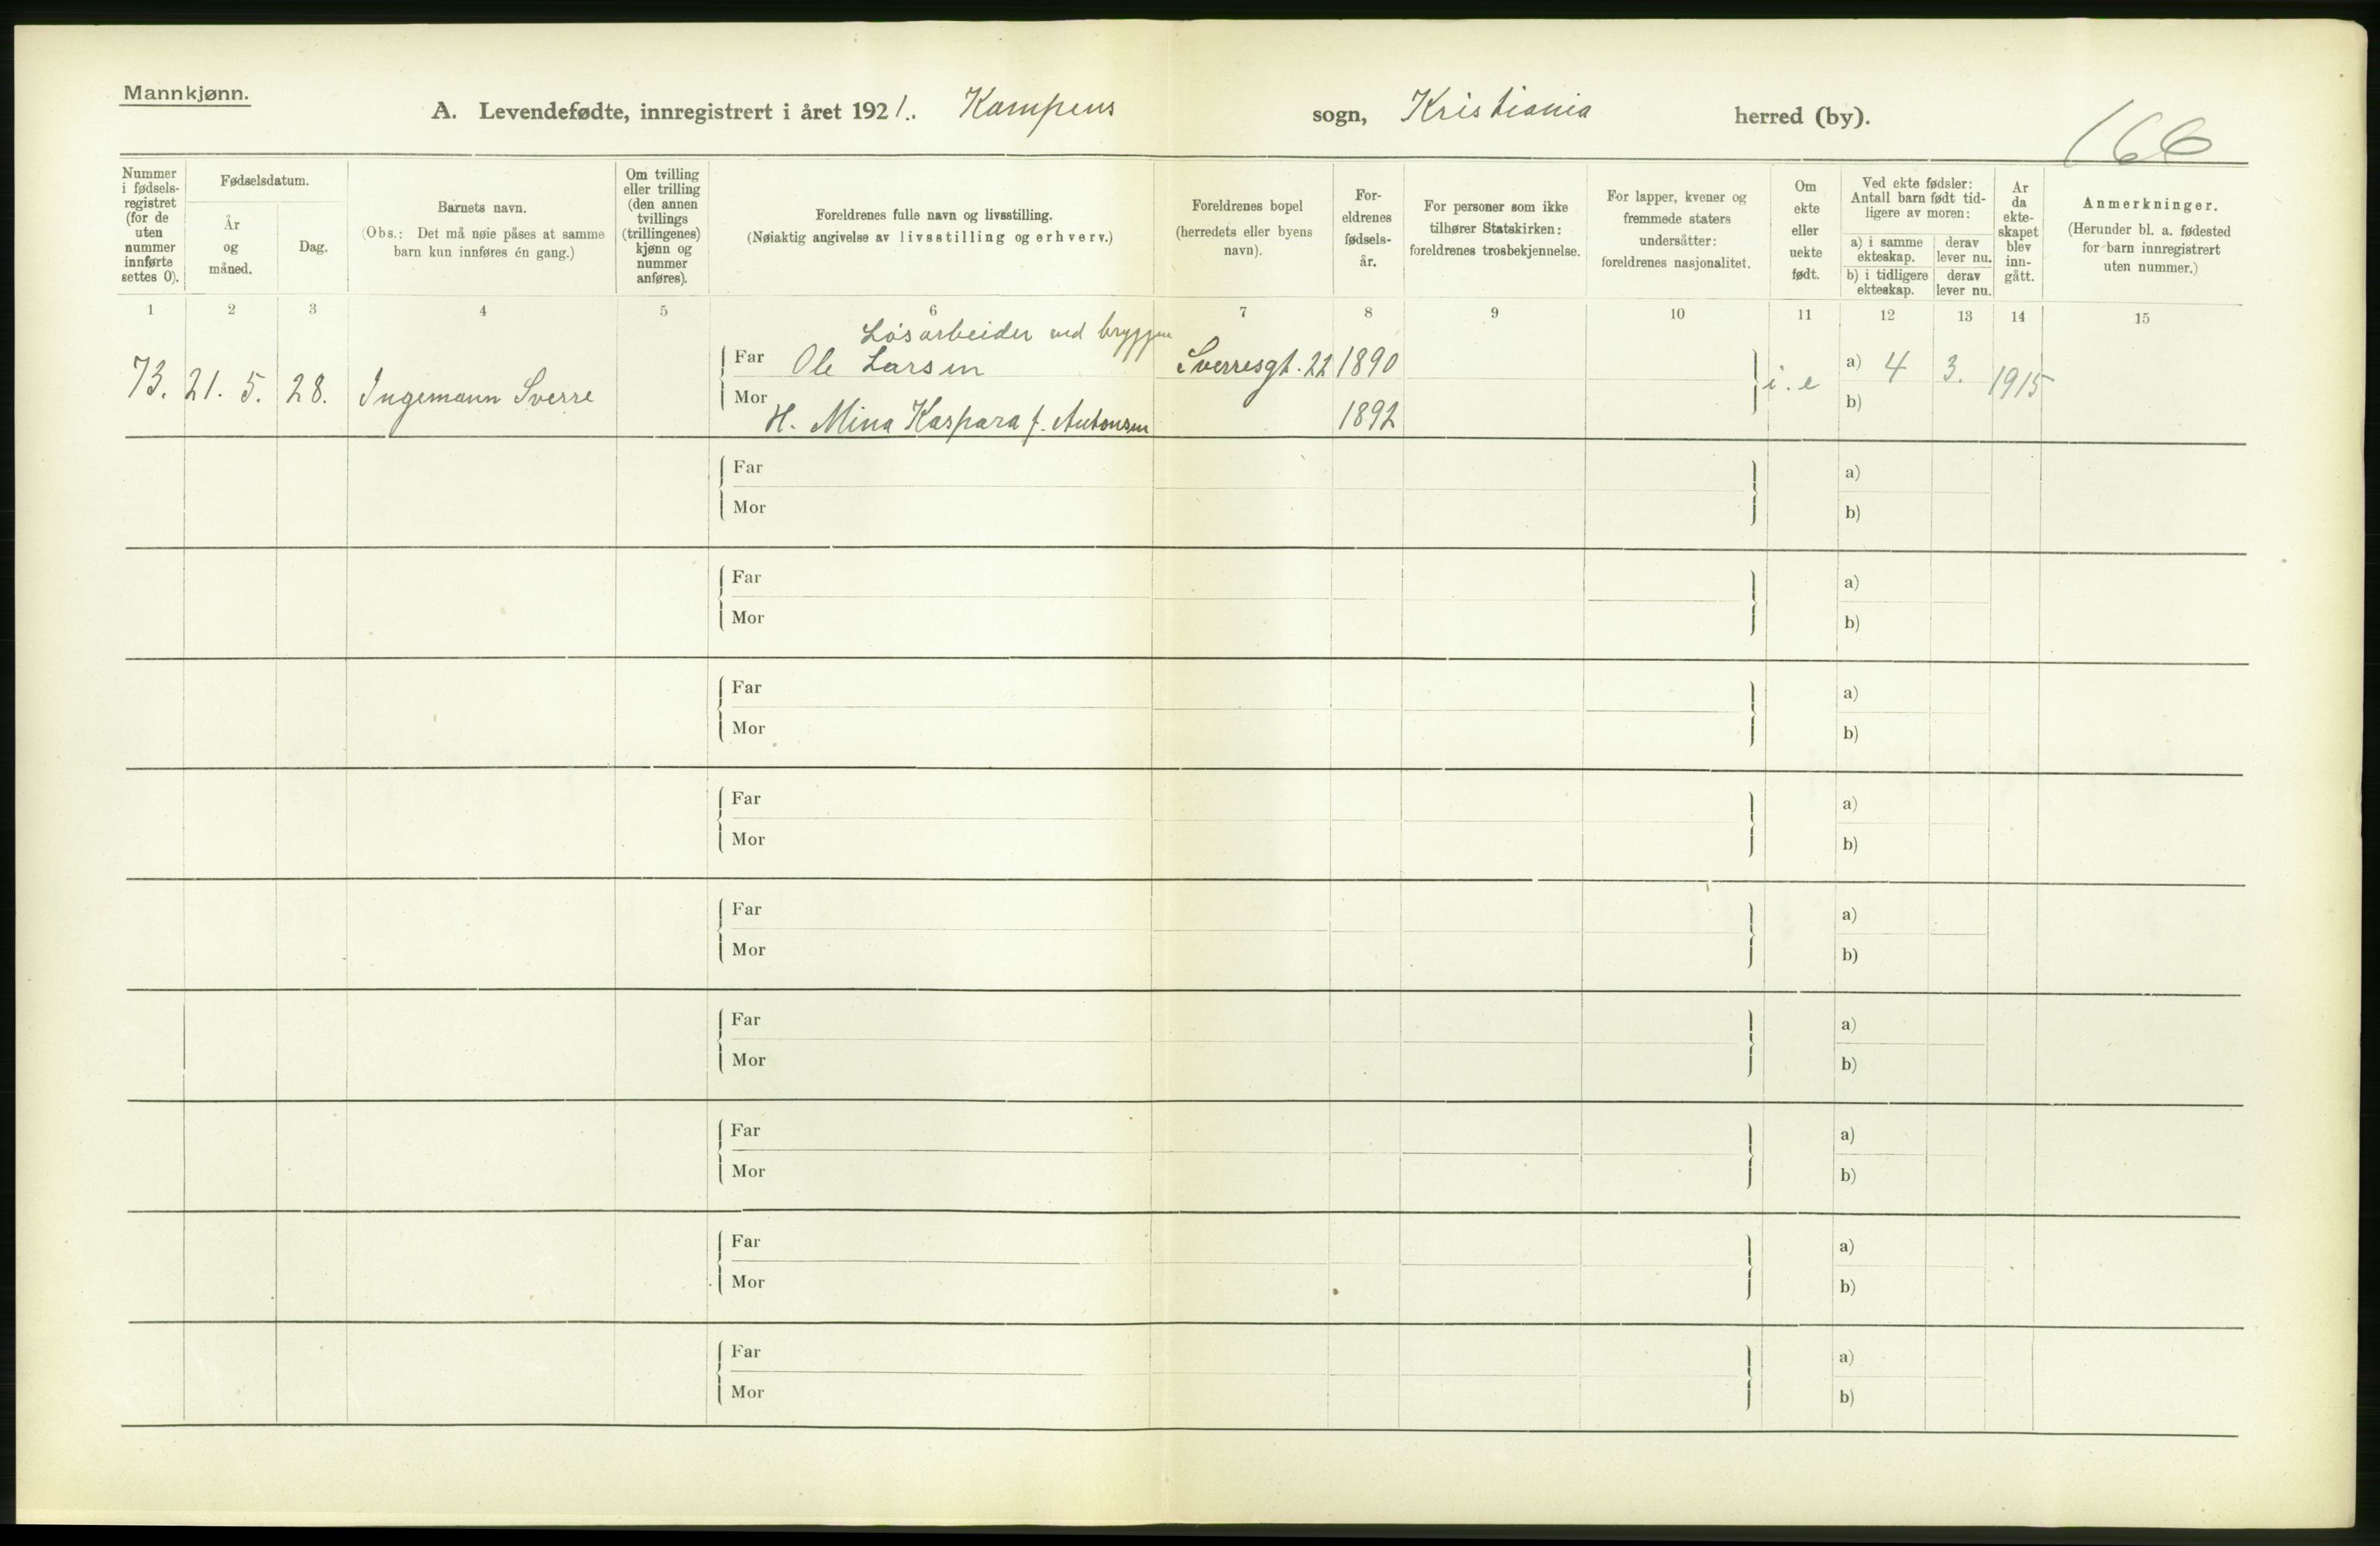 Mannkjønn.
A. Levendefødte, innregistrert i året 1921. Kampens sogn, Kristiania herred (by).
166
Nummer i fødsels-registret (for de uten nummer innførte settes 0).
Fødselsdatum.
År og måned.
Dag.
Barnets navn.
(Obs.: Det må nøie påses at samme barn kun innføres én gang.)
Om tvilling eller trilling (den annen tvillings (trillingenes) kjønn og nummer anføres).
Foreldrenes fulle navn og livsstilling.
(Nøiaktig angivelse av livsstilling og erhverv.)
Foreldrenes bopel (herredets eller byens navn).
For-eldrenes fødsels-år.
For personer som ikke tilhører Statskirken: foreldrenes trosbekjennelse.
For lapper, kvener og fremmede staters undersåtter: foreldrenes nasjonalitet.
Om ekte eller uekte født.
Ved ekte fødsler: Antall barn født tid-ligere av moren:
a) i samme ekteskap.
derav lever nu.
b) i tidligere ekteskap.
derav lever nu.
År da ekte-skapet blev inn-gått.
Anmerkninger.
(Herunder bl. a. fødested for barn innregistrert uten nummer.)
1 2 3 4 5 6 7 8 9 10 11 12 13 14 15
Løsarbeider ved bryggen
73. 21. 5. 28. Ingemann Sverre Far Ole Larsen Sverresgt. 22 1890 i. e a) 4 3. 1915
Mor H. Mina Kaspara f. Antonsen 1892 b)
Far a)
Mor b)
Far a)
Mor b)
Far a)
Mor b)
Far a)
Mor b)
Far a)
Mor b)
Far a)
Mor b)
Far a)
Mor b)
Far a)
Mor b)
Far a)
Mor b)